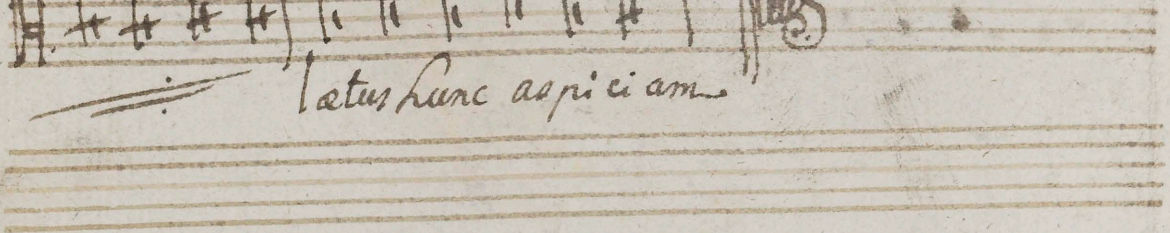 lætus hunc aspiciam